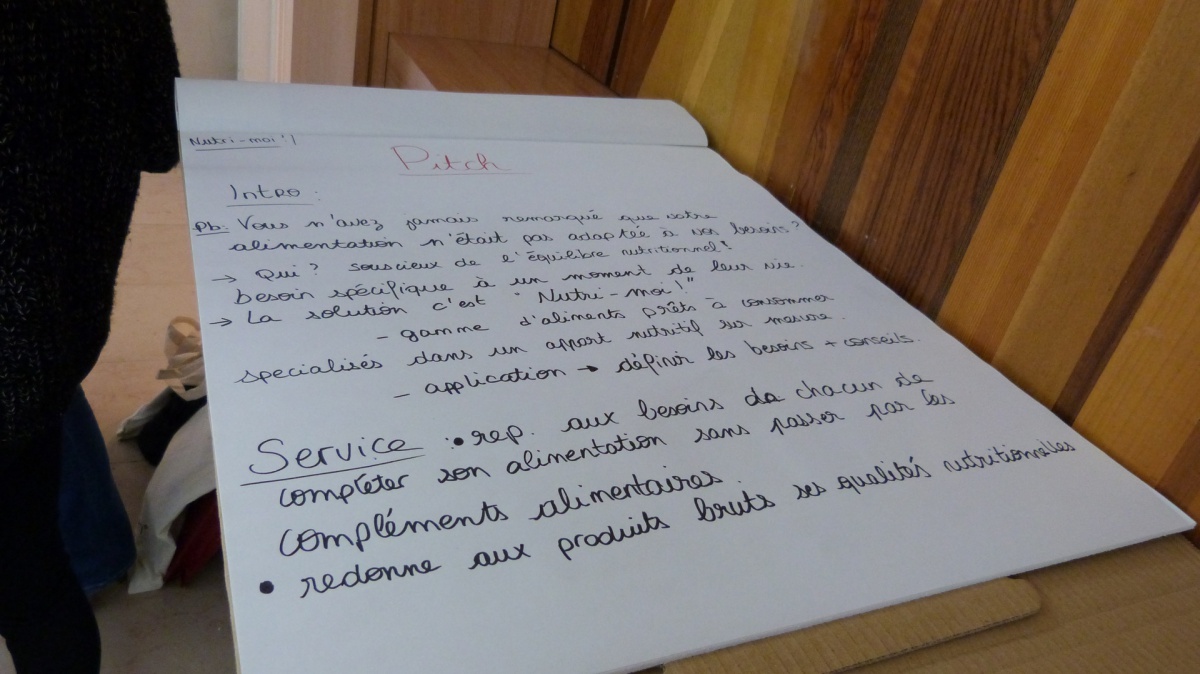 Nutri-moi !
Pitch
Intro :
Pb: Vous n'avez jamais remarqué que votre
alimentation n'était pas adaptée à vos besoins ?
→ Qui ? souscieux de l'équilibre nutritionnel !
besoin spécifique à un moment de leur vie.
→ La solution c'est "Nutri-moi !"
- gamme d'aliments prêts à consommer
specialisés dans un apport nutritif sur mesure.
- application → définir les besoins + conseils.
Service : • rep. aux besoins de chacun de
compléter son alimentation sans passer par les
compléments alimentaires.
• redonne aux produits bruts ses qualités nutritionnelles